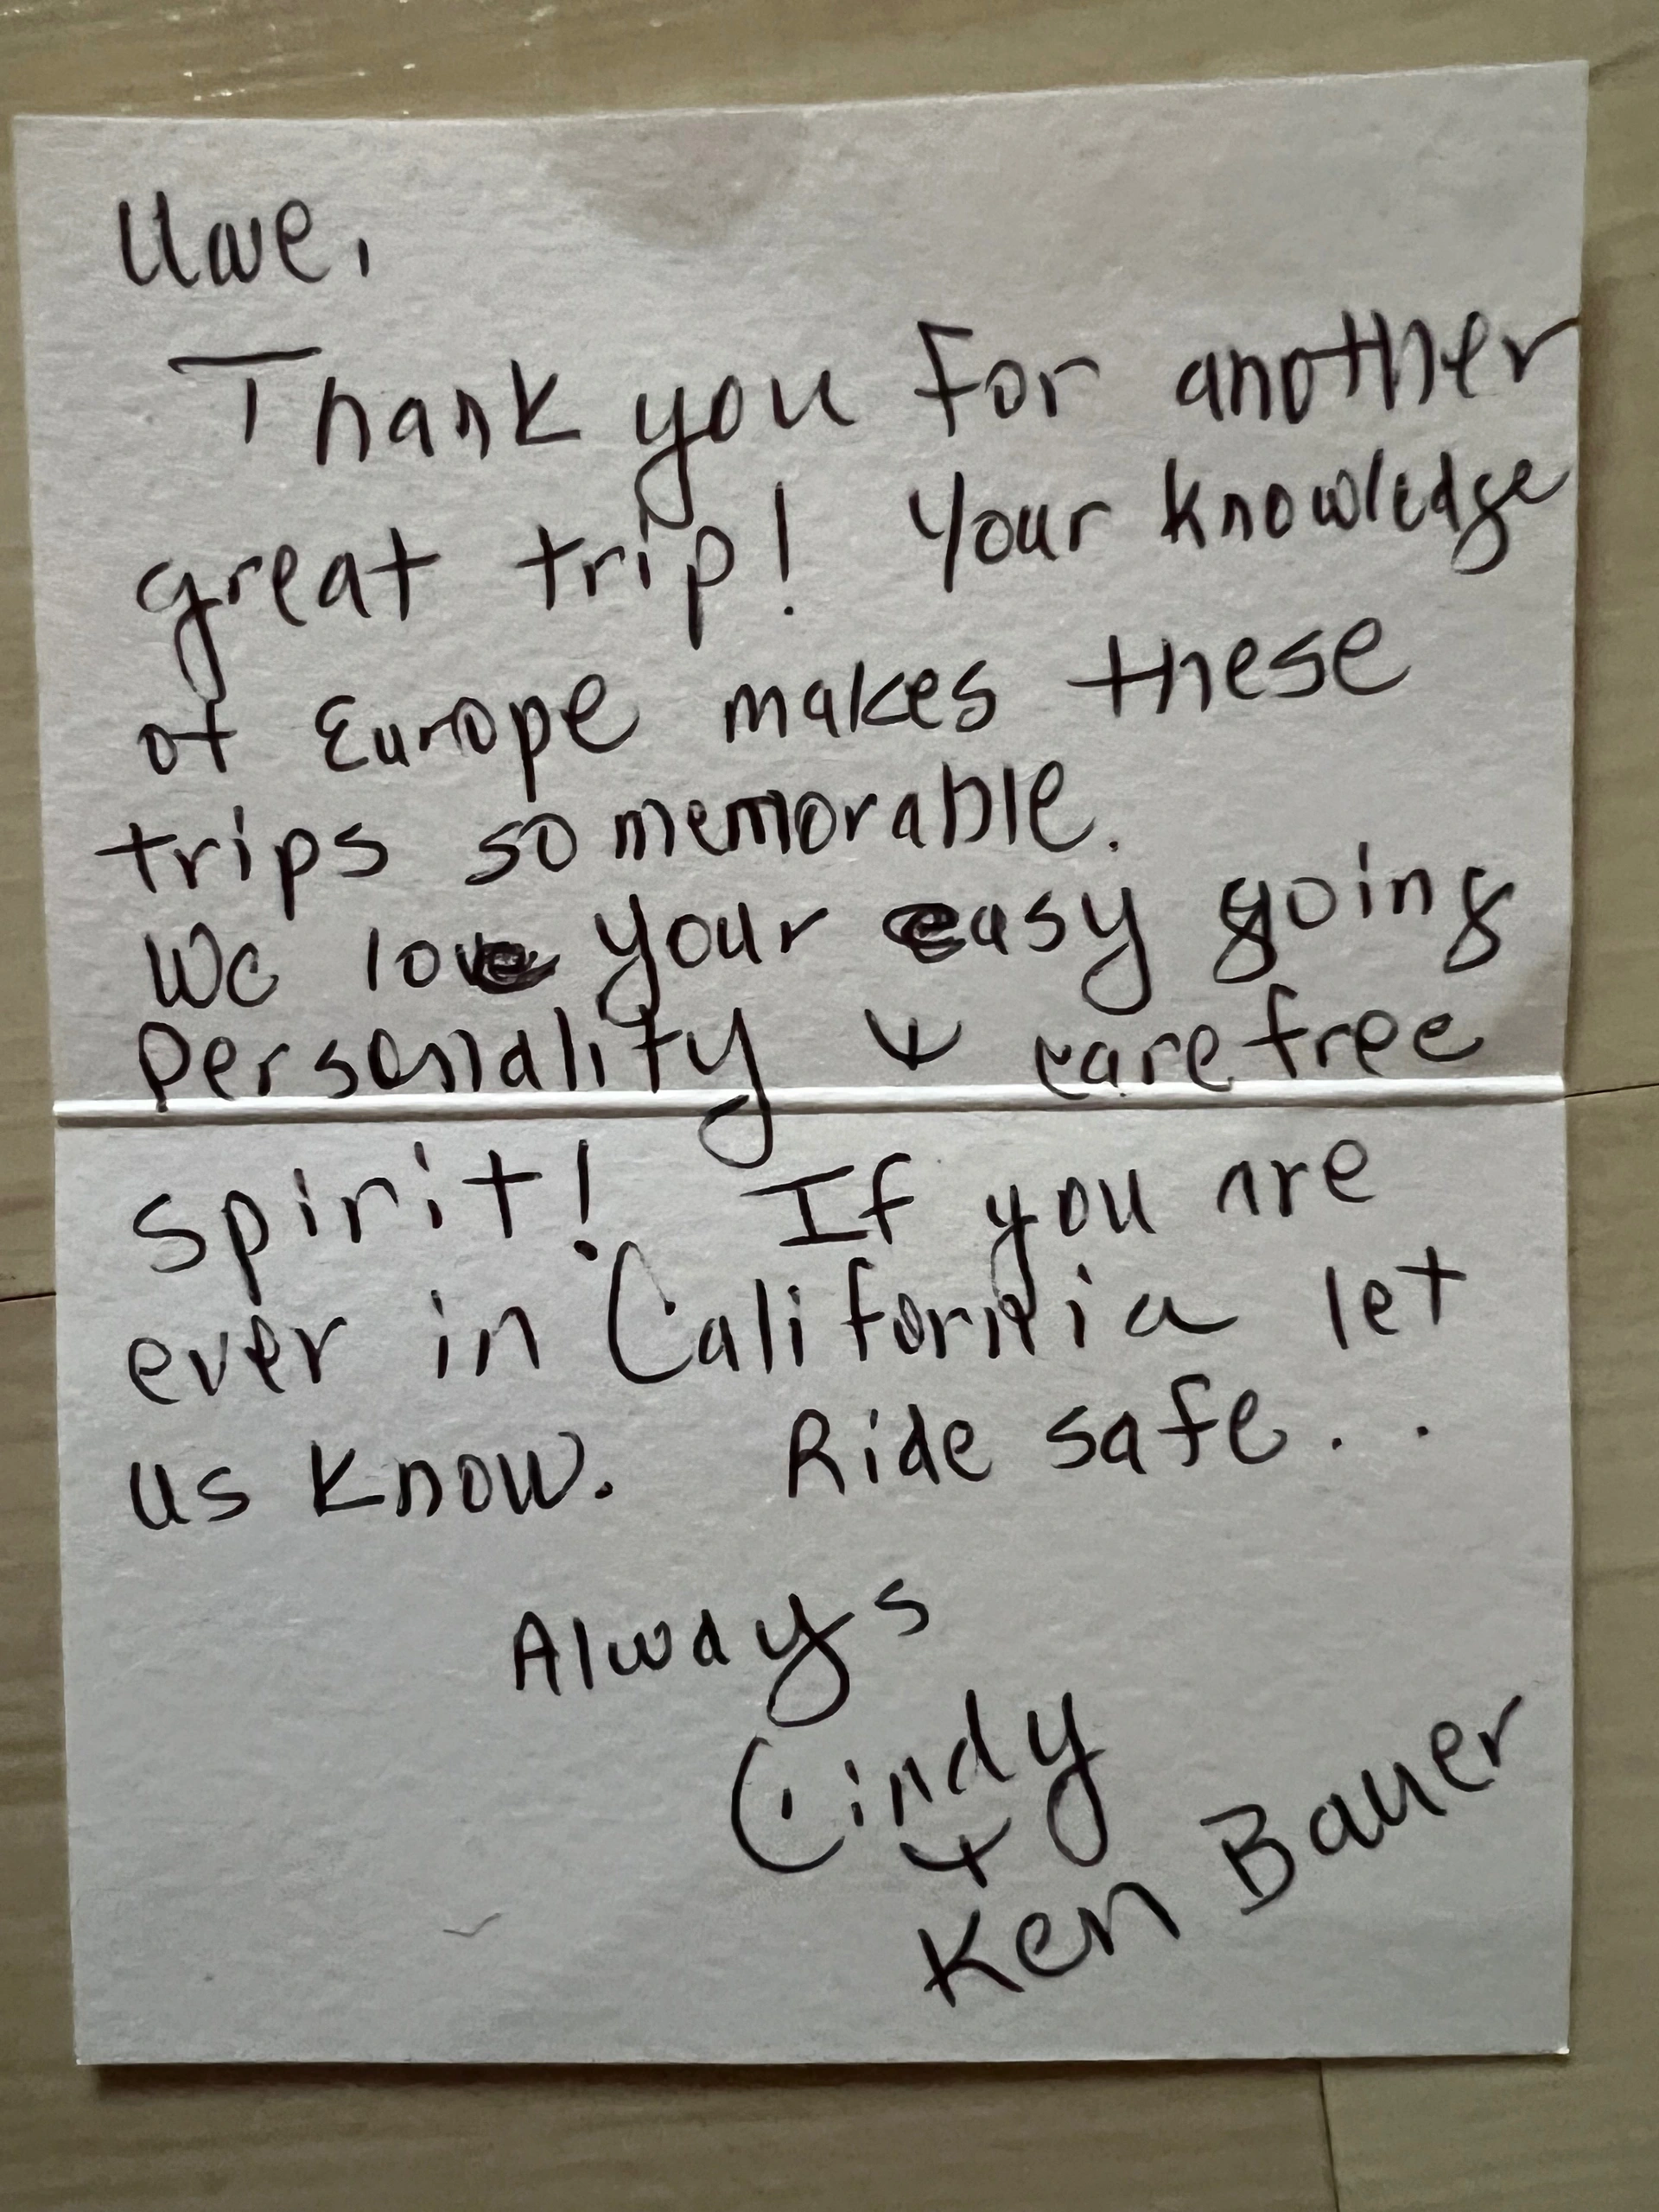 Uwe,
Thank you for another
great trip! Your knowledge
of Europe makes these
trips so memorable.
We love your easy going
Personality & carefree
spirit! If you are
ever in California let
us know. Ride safe..
Always
Cindy
&
Ken Bauer